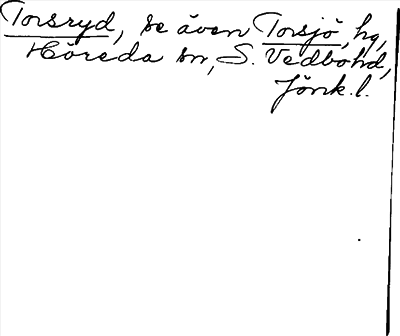 Torsryd, se även Torsjö, hg,
Höreda sn, S. Vedbo hd,
Jönk.l.